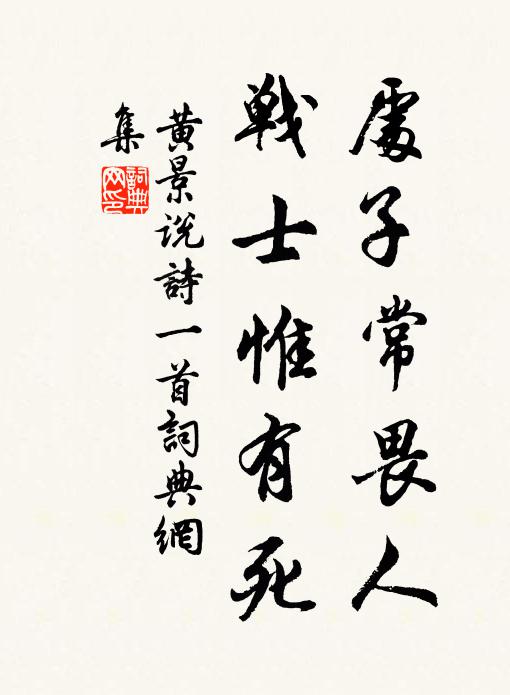 處子常畏人
戰士惟有死
黄景说詩一首詞典網
集
詞典
网印